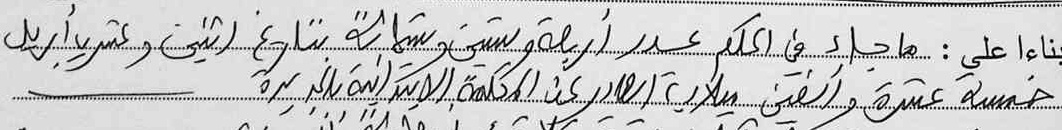 بناءا على : ما جاء في الحكم عدد أربعة وستين وستمائة بتاريخ اثنين و عشرين أبريل
خمسة عشرة و ألفين ميلادية الصادر عن المحكمة الابتدائية بالجديدة